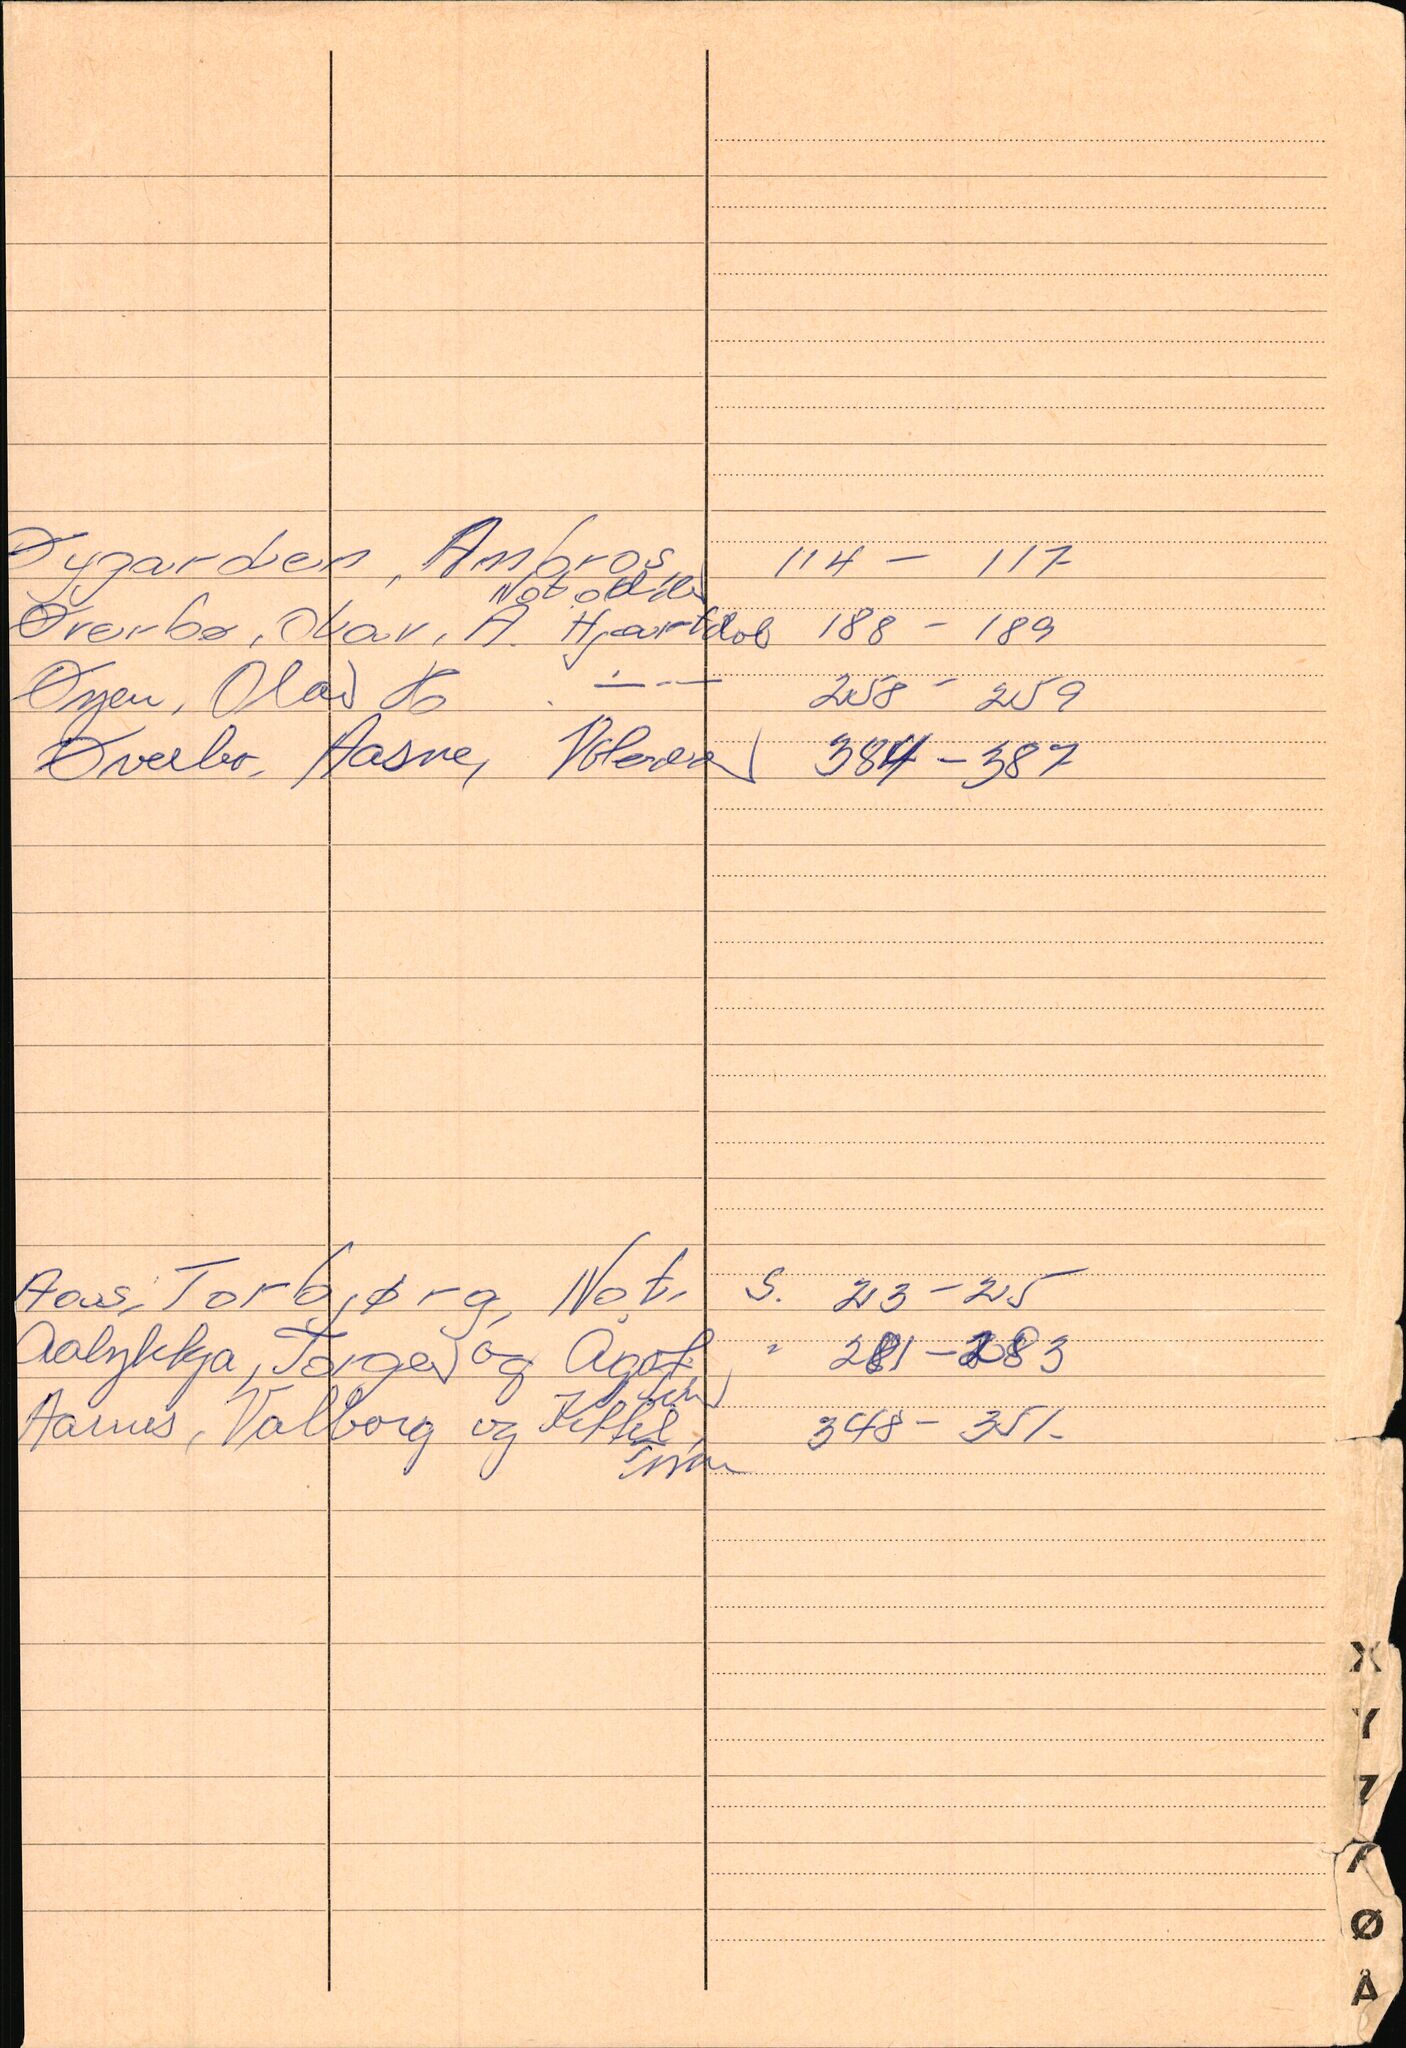 Øygarden, Ambros, 114 - 117
Notodden
Øverbø, Olav, A. Hjartdal 188 - 189
Øyen, Olav H. — " — 258 - 259
Øverbø, Aasne, 384 - 387
Aas, Torbjørg, Not. S. 23 - 25
Aalykkja, Torger og Ågot " 281 - 283
Aarnes, Valborg og Kittil, 348 - 351.
Tinn
X
Y
Z
Æ
Ø
Å